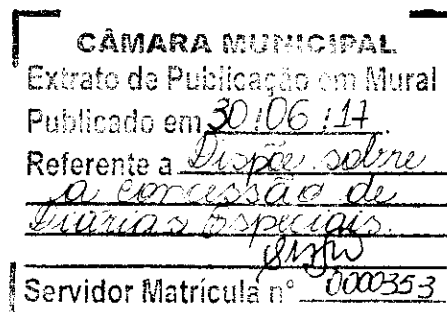 CÂMARA MUNICIPAL
Extrato de Publicação em Mural
Publicado em 30/06/17.
Referente a Dispõe sobre
a concessão de
Diárias Especiais.
Servidor Matrícula nº 0000353